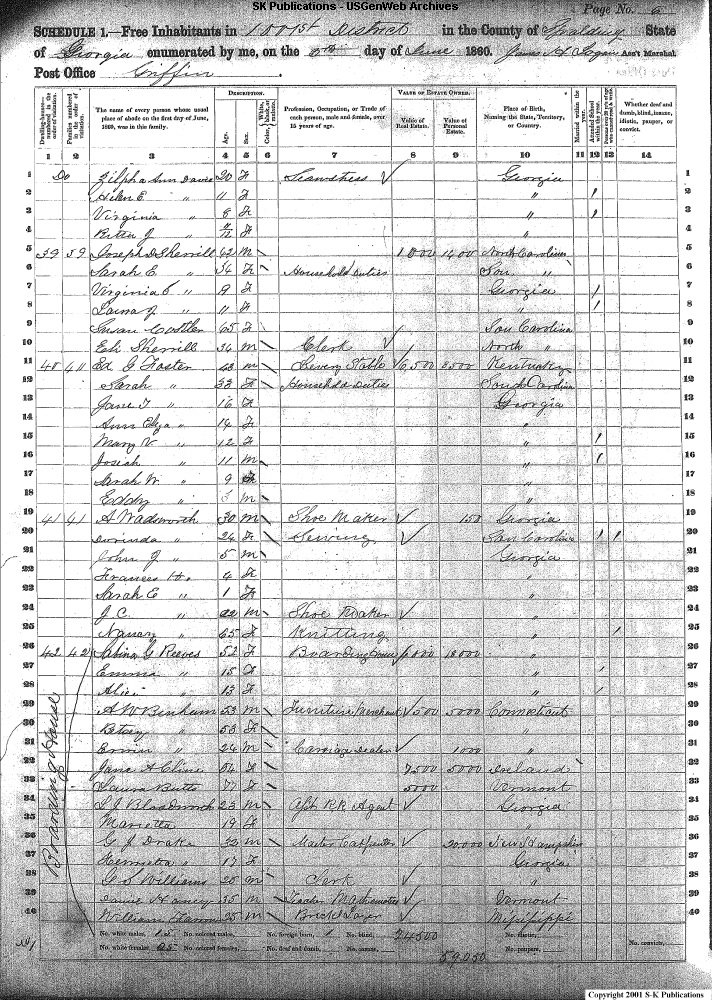 SK Publications - USGenWeb Archives
Page No. 6
SCHEDULE 1.—Free Inhabitants in 1001st District in the County of Spalding State
of Georgia enumerated by me, on the day of June 1860. Ass't Marshal
Post Office Griffin.
Dwelling-houses numbered in the order of visitation.
Families numbered in the order of visitation.
The name of every person whose usual place of abode on the first day of June, 1860, was in this family.
DESCRIPTION.
Age.
Sex.
White, black, or mulatto. Color,
Profession, Occupation, or Trade of each person, male and female, over 15 years of age.
VALUE OF ESTATE OWNED.
Value of Real Estate.
Value of Personal Estate.
Place of Birth, Naming the State, Territory, or Country.
Married within the year.
Attended School within the year.
Whether deaf and dumb, blind, insane, idiotic, pauper, or convict.
1 2 3 4 5 6 7 8 9 10 11 12 13 14
1 Do Zilpha Ann Davis 20 F Seamstress Georgia 1
2 Helen E " 11 F " / 2
3 Virginia " 8 F " / 3
4 J " 4
5 39 59 Joseph D Sherrill 42 M 1000 1400 North Carolina 5
6 Sarah E " 34 F Household Duties Sou " 6
7 Virginia " 9 F Georgia / 7
8 " 11 F " / 8
9 Susan 65 F Sou Carolina 9
10 Eli Sherrill 34 M Clerk North " 10
11 40 Ed G Foster 43 M Livery Stable 6,500 Kentucky 11
12 Sarah " 33 F Household Duties South Carolina 12
13 Jane T " 16 F Georgia 13
14 Ann Eliza " 14 F " 14
15 Mary V " 12 F " / 15
16 Josiah " 11 M " / 16
17 Sarah W " 9 " 17
18 Eddy " 3 M " 18
19 41 41 A Wadsworth 30 M Shoe Maker 150 Georgia 19
20 " 24 F Sewing Sou Carolina / / 20
21 John J " 5 M Georgia 21
22 Frances " 4 F " 22
23 Sarah E " 1 F " 23
24 J. C. " 22 M Shoe Maker " 24
25 Nancy " 65 F Knitting " / 25
26 42 42 Sabina G Reeves 52 F Boarding House 6000 18000 " 26
27 Emma " 15 F " / 27
28 Alice " 13 F " / 28
29 A W Binham 53 M Furniture Merchant 500 5000 Connecticut 29
30 Betsey " 53 F " 30
31 " 24 M Carriage Dealer 1000 " 31
32 Jane A Cline 54 F 7500 5000 Ireland 32
33 Laura Butts 77 F 5000 Vermont 33
34 Bloodworth 23 M RR Agent Georgia 34
35 Marietta 19 F " 35
36 G J Drake 32 M Master Carpenter 20000 New Hampshire 36
37 Henrietta " 17 F Georgia 37
38 G S Williams 25 M Clerk " 38
39 35 M Teacher Mathematics Vermont 39
40 William 25 M Brick Layer Mississippi 40
Boarding House
No. white males, 15 No. colored males, No. foreign born, 1 No. blind, 24500 No. idiotic,
No. white females, 25 No. colored females, No. deaf and dumb, No. insane, 59050 No. paupers, No. convicts,
Copyright 2001 S-K Publications